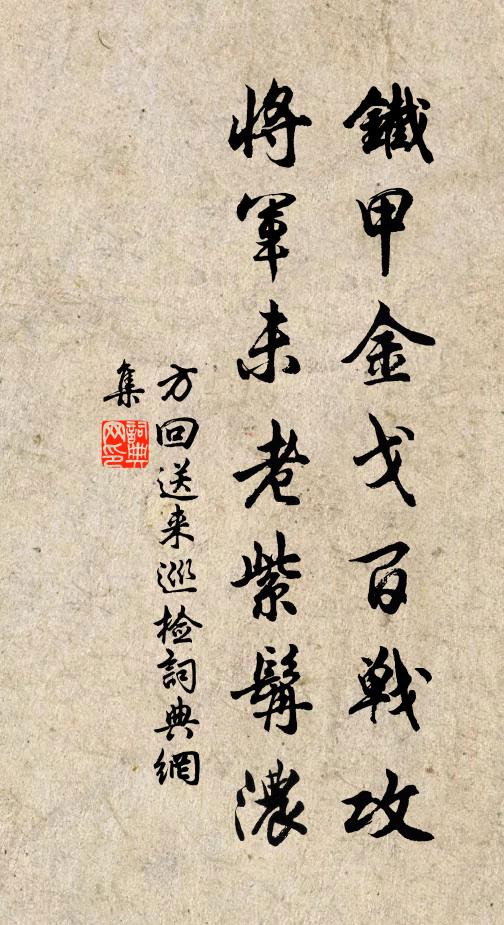 鐵甲金戈百戰攻
將軍未老紫髯濃
方回送来巡檢詞典網
集
詞典网印